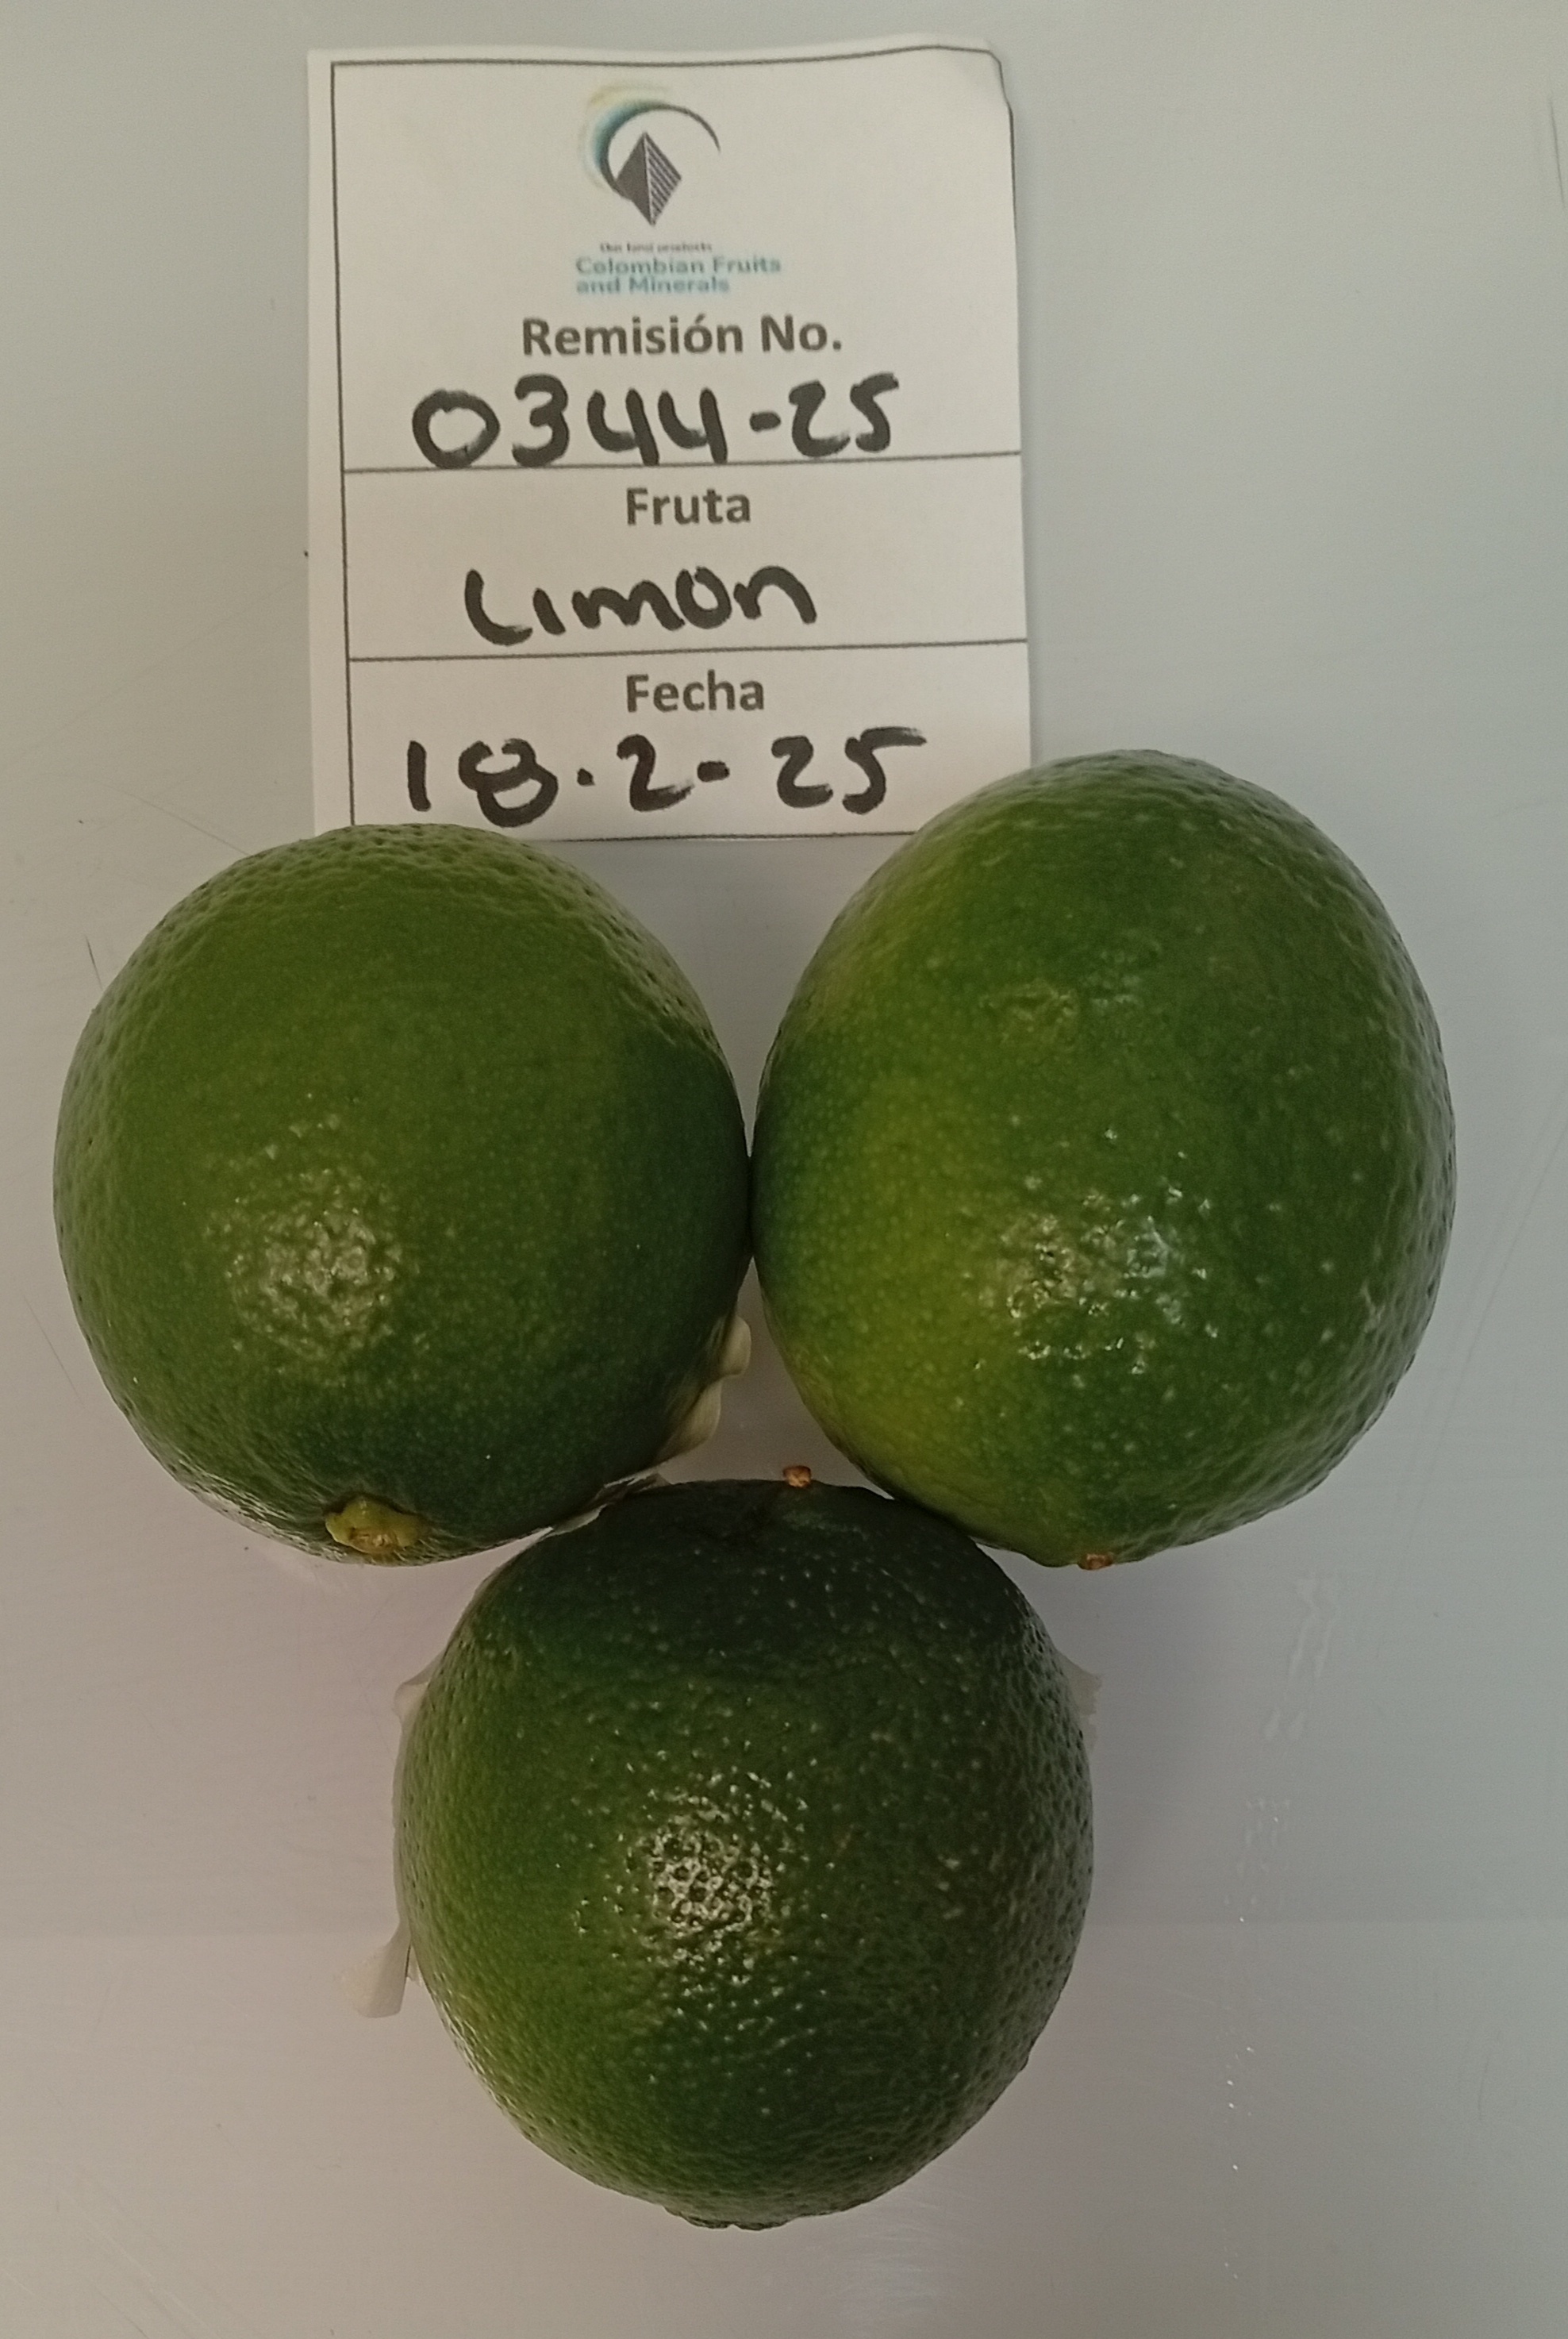 Our land products
Colombian Fruits
and Minerals
Remisión No.
0344-25
Fruta
Limon
Fecha
18.2-25